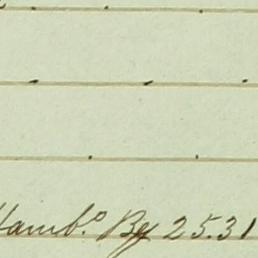 Hamb.º By 25.31